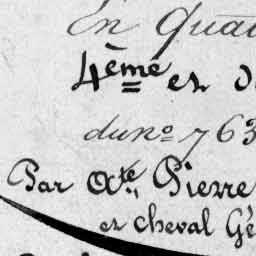 En Qua
4ème et d
du no 763
Par Acte, Pierre
et cheval Gé